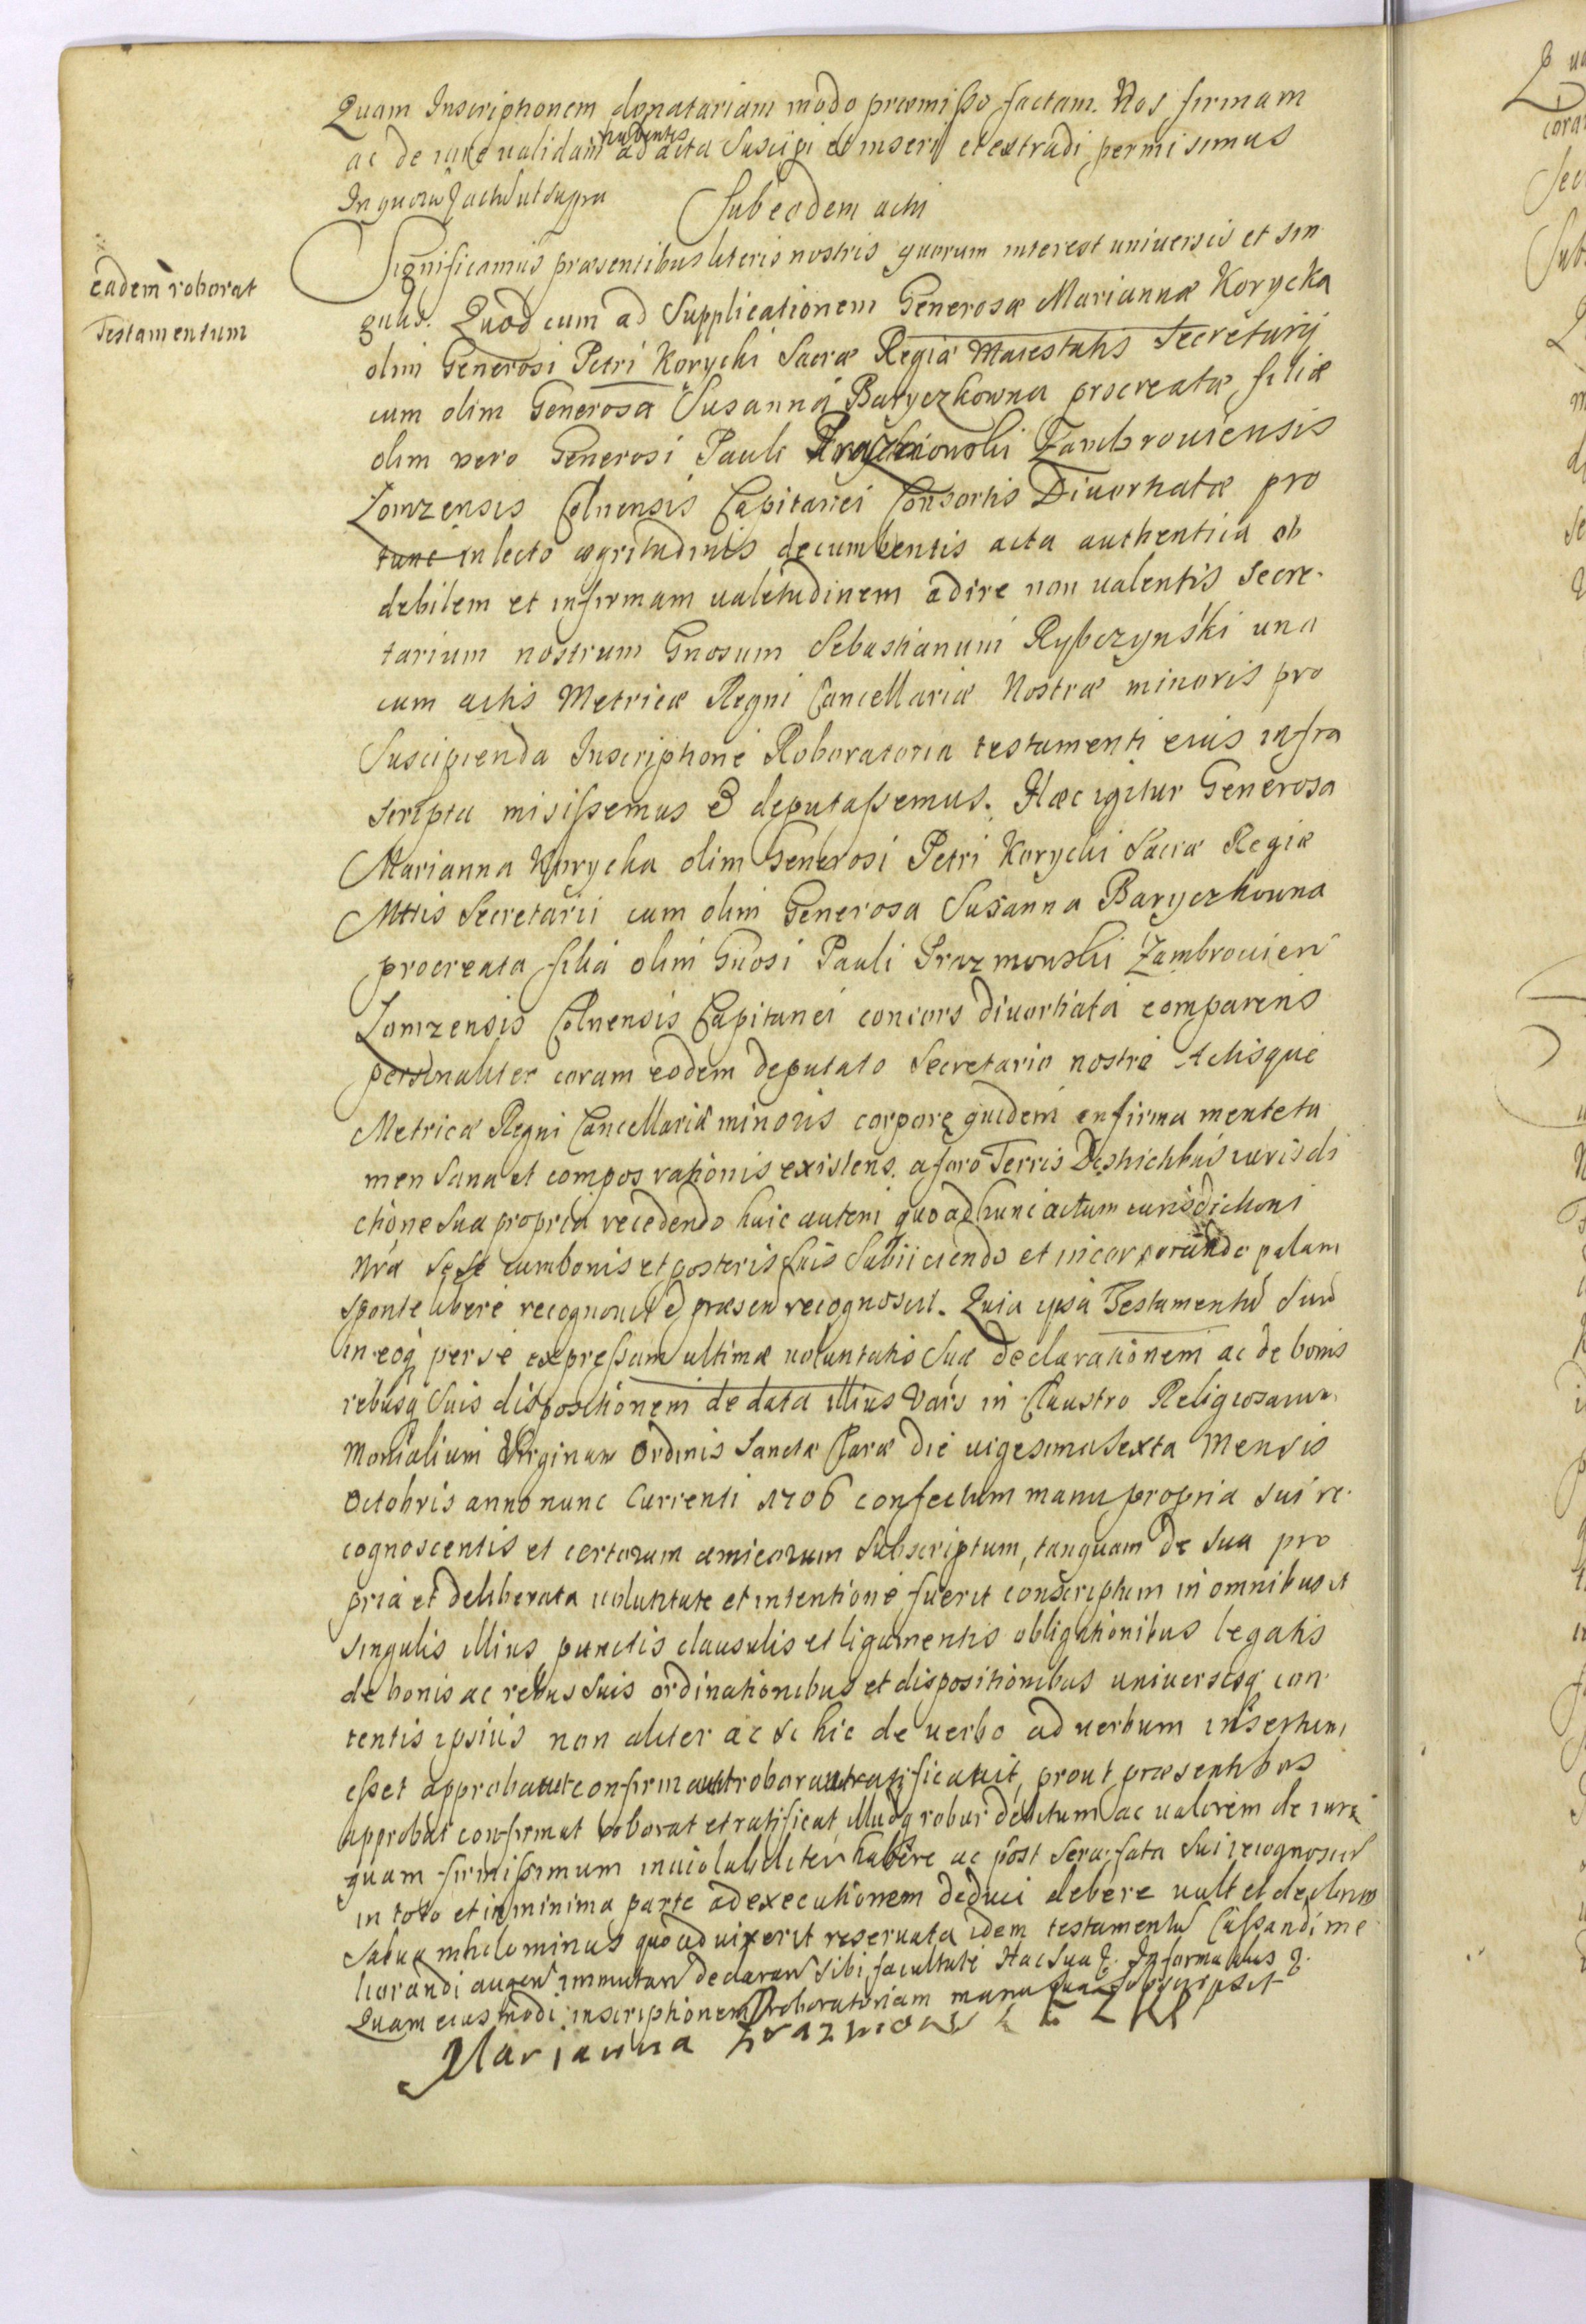 Quam Inscriptionem donatariam modo præmisso factam. Nos firmam
ac de iure ualidam habentes ad acta Suscipi et inseri et extradi permisimus
In quorũ & actũ ut supra
Sub eodem actu
eadem roborat
Testamentum
Significamus præsentibus literis nostris quorum interest uniuersis et sin
gulis. Quod cum ad Supplicationem Generosæ Mariannæ Korycka
olim Generosi Petri Korycki Sacræ Regiæ Maiestatis Secretarij
cum olim Generosa Susanna Baryczkowna procreatæ filiæ
olim vero Generosi Pauli Zambrouiensis
Lomzensis Colnensis Capitanei Consortis Diuortiatæ pro
tunc in lecto ægritudinis decumbentis acta authentica ob
debilem et infirmam ualetudinem adire non ualentis Secre-
tarium nostrum Gnosum Sebastianum Rybczynski una
cum actis Metricæ Regni Cancellariæ Nostræ minoris pro
Suscipienda Inscriptione Roboratoria testamenti eius infra
scripta misissemus & deputassemus. Hæc igitur Generosa
Marianna Korycka olim Generosi Petri Korycki Sacræ Regiæ
Mttis Secretarii cum olim Generosa Susanna Baryczkowna
procreata filia olim Gnosi Pauli Prazmowski Zambrouien
Lomzensis Colnensis Capitanei consors diuortiata comparens
personaliter coram eodem deputato Secretario nostro Actisque
Metricæ Regni Cancellariæ minoris corpore quidem infirma mente ta
men Sana et compos rationis existens. a foro Terris Districtibus iurisdi
ctione Sua propria recedendo huic autem quo ad hunc actum iurisdictioni
Nræ Sese cum bonis et posteris Suis Subiiciendo et incorporando palam
Sponte libere recognouit & præsen recognoscit. Quia ipsa Testamentũ Suũ
in eoq per se expressam ultimæ uoluntatis Suæ declarationem ac de bonis
rebusq Suis dispositionem de data illius Vars in Claustro Religiosarum
Monialium Virginum Ordinis Sanctæ Claræ die uigesima Sexta Mensis
Octobris anno nunc Currenti 1706 confectum manu propria Sui re-
cognoscentis et certorum amicorum Subscriptum, tanquam de Sua pro
pria et deliberata uoluntate et intentione fuerit conscriptum in omnibus et
Singulis illius punctis clausulis et ligamentis obligationibus legatis
de bonis ac rebus Suis ordinationibus et dispositionibus uniuersisq con-
tentis ipsius non aliter ac si hic de uerbo ad uerbum insertum
esset approbauit confirmauit roborauit ratificauit, prout præsentibus
approbat confirmat roborat et ratificat, illudq robur debitum ac ualorem de iure
quam firmissimum inuiolabiliter habere ac post Sera fata Sui recognoscen
in toto et in minima parte ad executionem deduci debere uult et declarat
Salua nihilominus quo ad uixerit reseruata idem testamentũ Cassandi me
liorandi augen immutan declaran Sibi facultate Hac Sua &. In forma &.
Quam eiusmodi inscriptionem roboratoriam manu Sua Subscripsit
Marianna